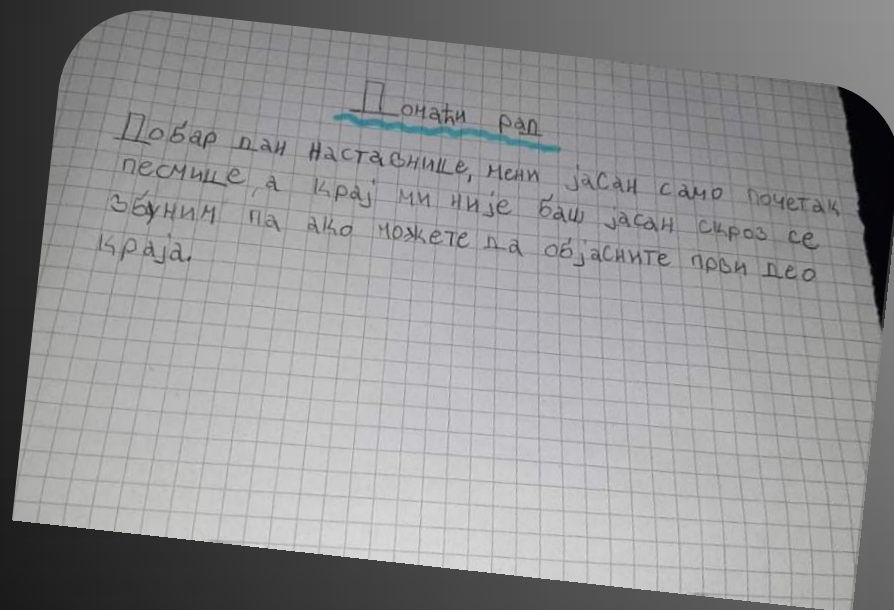 Домаћи рад
Добар дан наставнице, мени јасан само почетак
песмице, а крај ми није баш јасан скроз се
збуним па ако можете да објасните први део
краја.